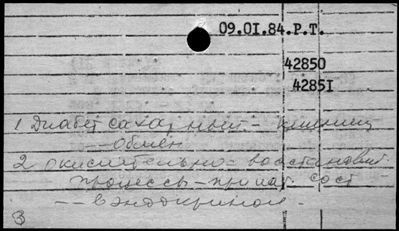 09.01.84.Р.Т.
42850
42851
1 Диабет сахарный –
– обмен
2 окислительно – восстановит
процессы – при пат. сост
– – эндокринол.
3